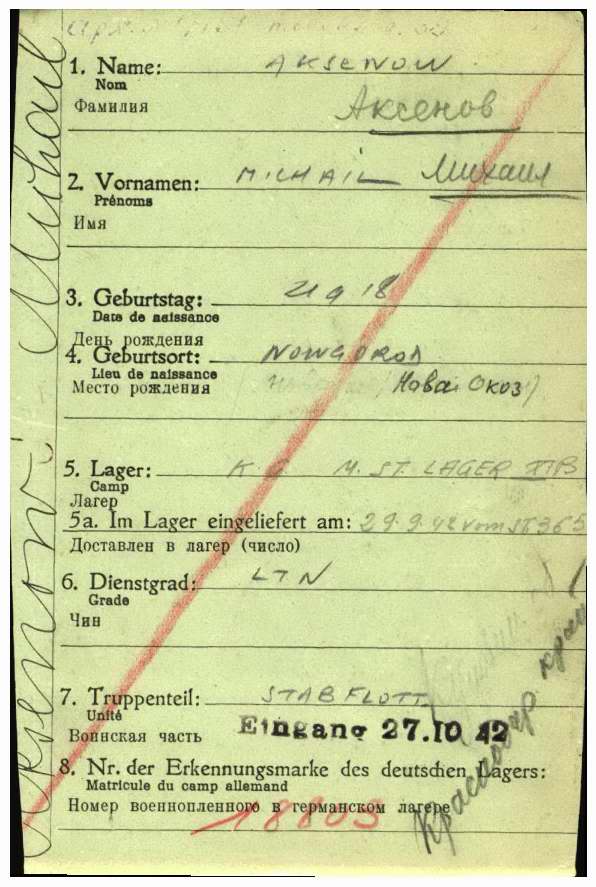 1. Name: AKSENOW
Nom
Фамилия
Аксенов
2. Vornamen: MICHAIL Михаил
Prénoms
Имя
3. Geburtstag: 21 9 18
Date de naissance
День рождения
4. Geburtsort: NOWGOROD
Lieu de naissance
Место рождения
5. Lager: M. ST. LAGER
Camp
Лагер
5a. Im Lager eingeliefert am: 29.9.42 vom ST 365
Доставлен в лагер (число)
6. Dienstgrad: LTN
Grade
Чин
7. Truppenteil: STAB FLOTT
Unité
Воинская часть
Eingang 27.10 42
8. Nr. der Erkennungsmarke des deutschen Lagers:
Matricule du camp allemand
Номер военнопленного в германском лагере
18803
Краснодар край
Aksenow Michael